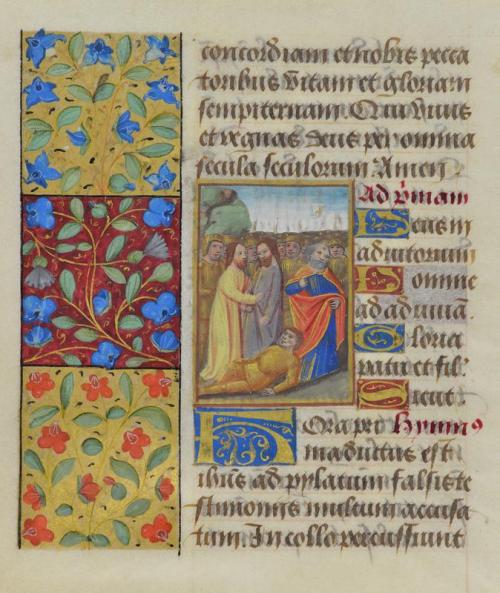 concordiam et nobis pecca
toribus vitam et gloriam
sempiternam. Qui vivis
et regnas deus per omnia
secula seculorum Amen
Ad primam
Deus in
adiutorium
Domine
ad adiuva.
Gloria
patri et fil.
Sicut
Hora pri Hymn9
ma ductus est
ihus ad pylatum falsis te
stimoniis multum accusa
tum. In collo percussiunt